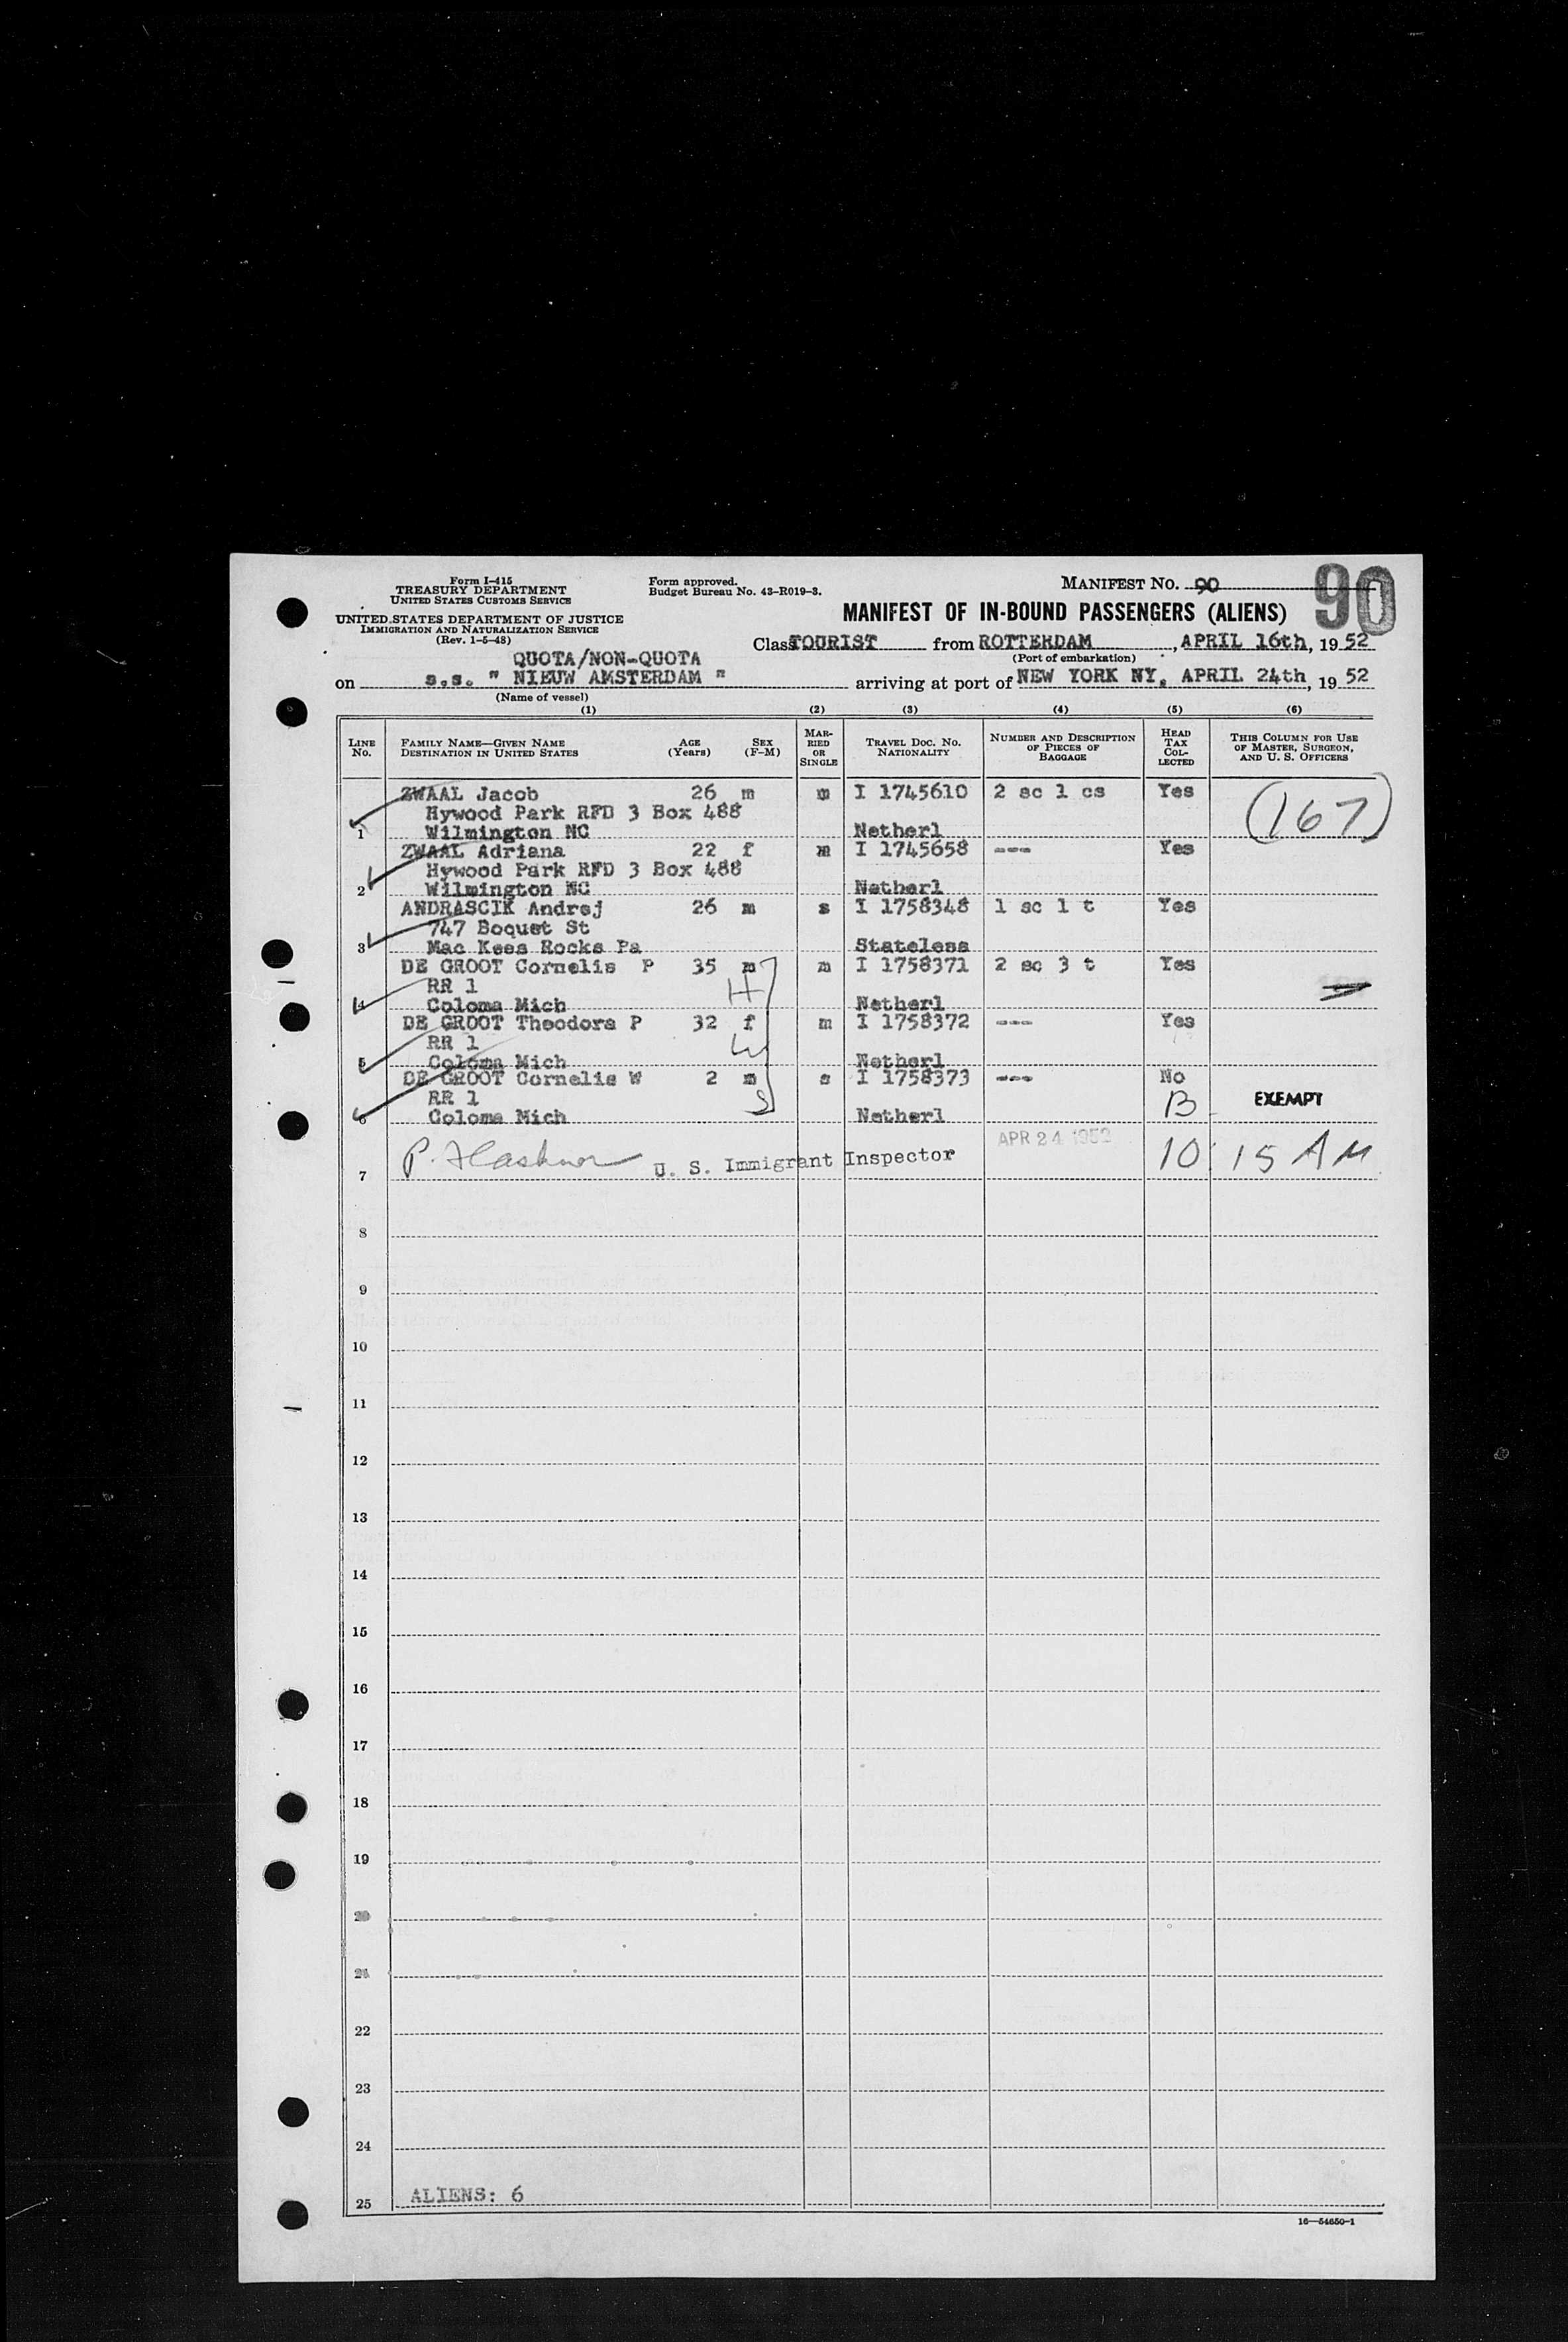 Form I-415
TREASURY DEPARTMENT
UNITED STATES CUSTOMS SERVICE
UNITED STATES DEPARTMENT OF JUSTICE
IMMIGRATION AND NATURALIZATION SERVICE
(Rev. 1-5-48)
Form approved.
Budget Bureau No. 43-R019-3.
MANIFEST NO. 90
90
MANIFEST OF IN-BOUND PASSENGERS (ALIENS)
Class TOURIST from ROTTERDAM, APRIL 16th, 19 52
(Port of embarkation)
QUOTA/NON-QUOTA
on s.s. " NIEUW AMSTERDAM " arriving at port of NEW YORK NY, APRIL 24th, 19 52
(Name of vessel)
(1) (2) (3) (4) (5) (6)
LINE No. FAMILY NAME—GIVEN NAME DESTINATION IN UNITED STATES AGE (Years) SEX (F-M) MARRIED OR SINGLE TRAVEL DOC. NO. NATIONALITY NUMBER AND DESCRIPTION OF PIECES OF BAGGAGE HEAD TAX COLLECTED THIS COLUMN FOR USE OF MASTER, SURGEON, AND U. S. OFFICERS
ZWAAL Jacob 26 m m I 1745610 2 sc 1 cs Yes (167)
Hywood Park RFD 3 Box 488
1 Wilmington NC Netherl
ZWAAL Adriana 22 f m I 1745658 --- Yes
Hywood Park RFD 3 Box 488
2 Wilmington NC Netherl
ANDRASCIK Andrej 26 m s I 1758348 1 sc 1 t Yes
747 Boquet St
3 Mac Kees Rocks Pa Stateless
DE GROOT Cornelis P 35 m m I 1758371 2 sc 3 t Yes
RR 1 H
4 Coloma Mich Netherl
DE GROOT Theodora P 32 f m I 1758372 --- Yes
RR 1 W
5 Coloma Mich Netherl
DE GROOT Cornelis W 2 m s I 1758373 --- No
RR 1 S B EXEMPT
6 Coloma Mich Netherl
7 P. U. S. Immigrant Inspector APR 24 1952 10:15 AM
8
9
10
11
12
13
14
15
16
17
18
19
20
21
22
23
24
25 ALIENS: 6
16—54650-1